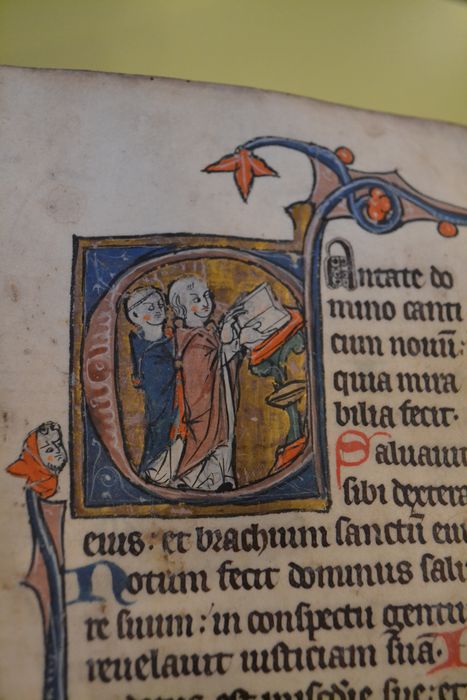 Antate do
mino canti
cum nouū:
quia mira
bilia fecit.
Saluauit
sibi dextera
eius: et brachium sanctū eiu
Notum fecit dominus salu
re suum: in conspectu gentiu
reuelauit iusticiam suā.